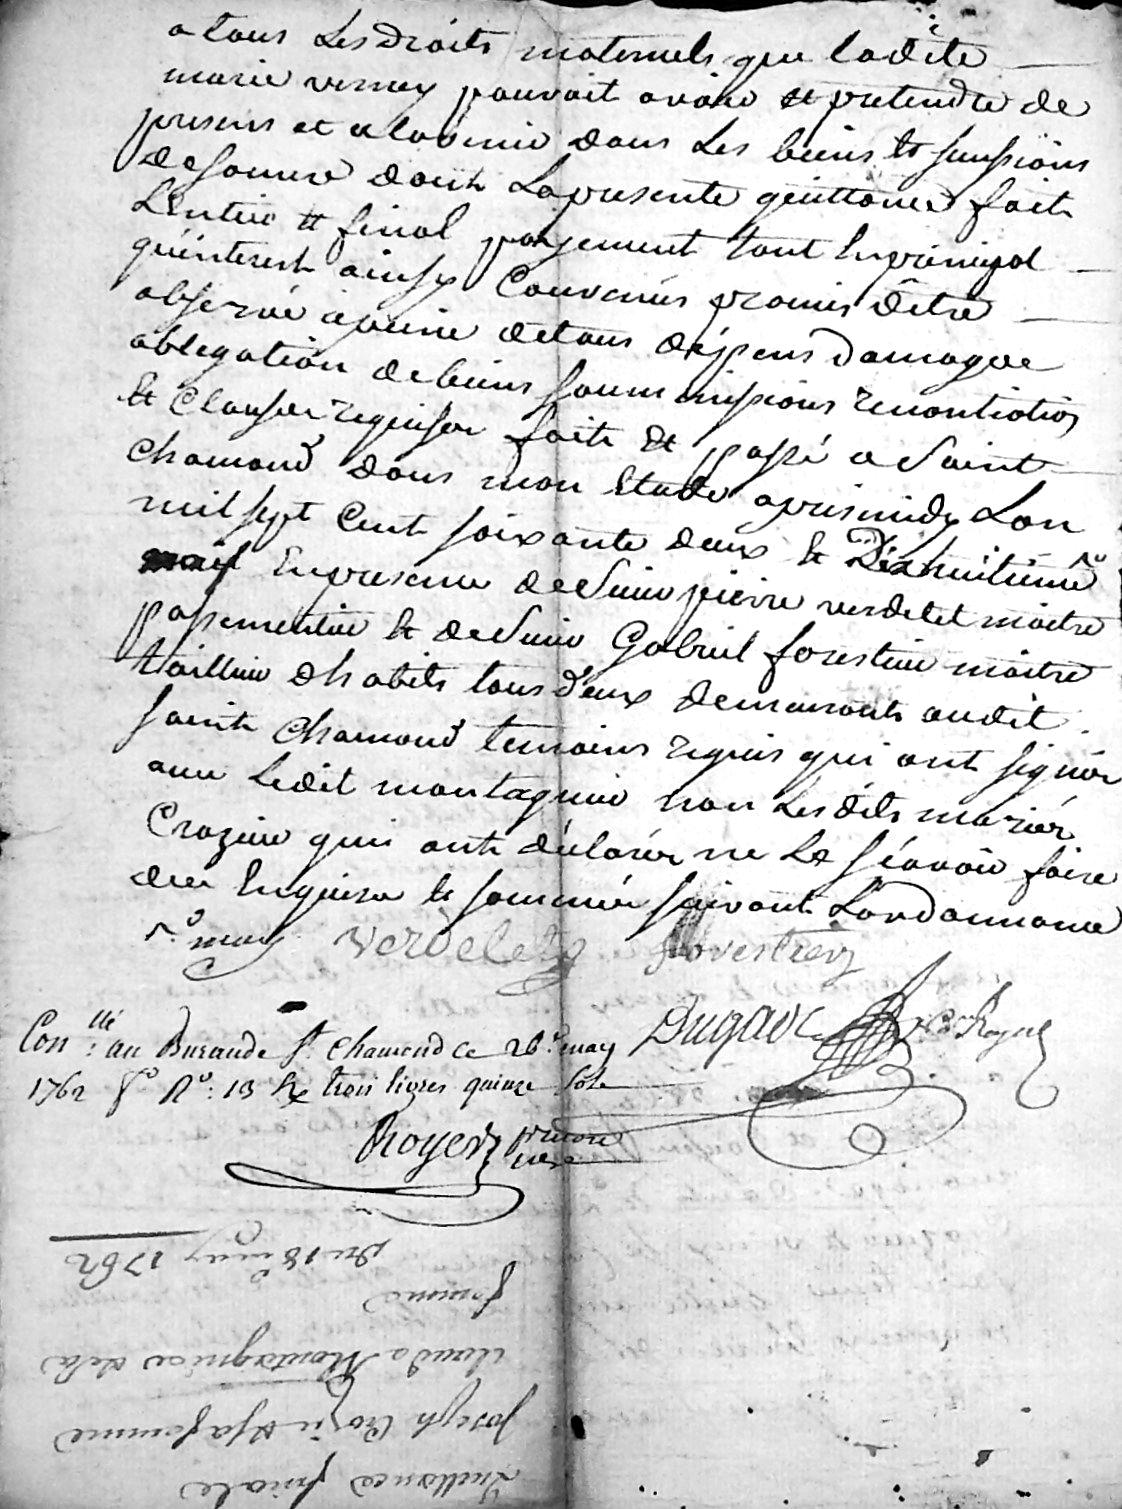 a tous Les droits maternels que ladite
marie verney pouvoit avoir et pretendre de
presens et alavenir dans Les biens et sucssions
desamere dont Lapresente quittance fait
Lentier et final payement tant Enprincipal
quinterest ainsy Convenus promis dêtre
observé apeine detous dépens damage
oblegation debiens soummissions renontiation
et Clauses requises fait et passé a Saint
chamond dans mon Etude apresmidy Lan
mil sept Cent soixante deux et Dixhuitieme
Enpresence deSieur pierre verdelet maitre
passementier et deSieur Gabriel forestier maitre
tailleur dhabits tous deux demeurants audit
saint chamond temoins requis qui ont signés
avec Ledit montagnier non Lesdits mariés
Crozier qui ont déclarés ne Le sçavoir faire
dece Enquiers et sommés suivant Lordonnance
may Verdelet forestier
Dugas
Con.llé au Bureau de St. chamond ce 26 may
1762 fo. No: 13 trois livres quinze sols
Royer
Quittance finale
Joseph Crozier et sa femme
Claude Montagnier de la
somme
Du 18 may 1762